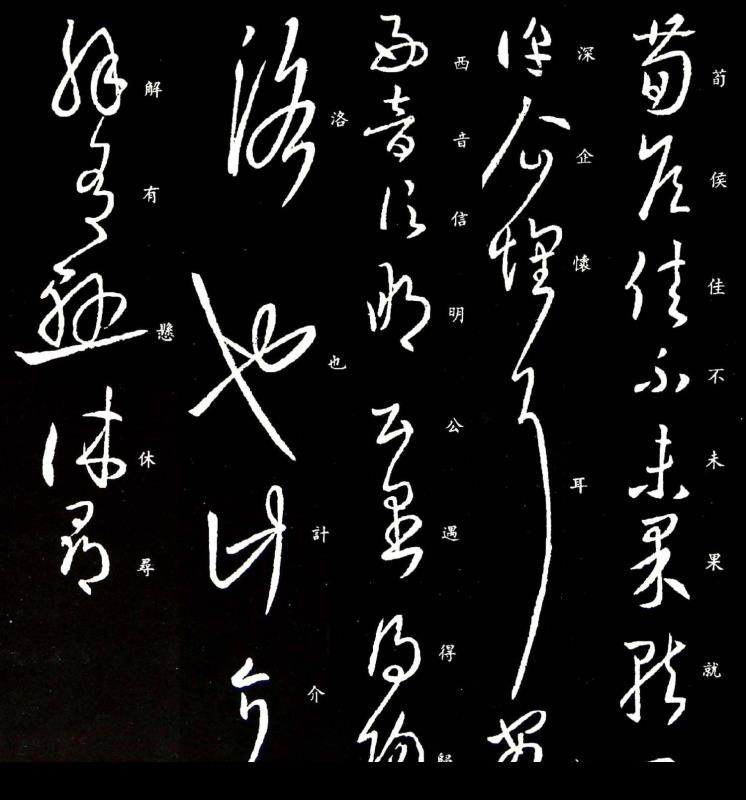 荀侯佳不未果就
深企懷耳
西音信明公遇得歸
洛也計介
解有懸休尋